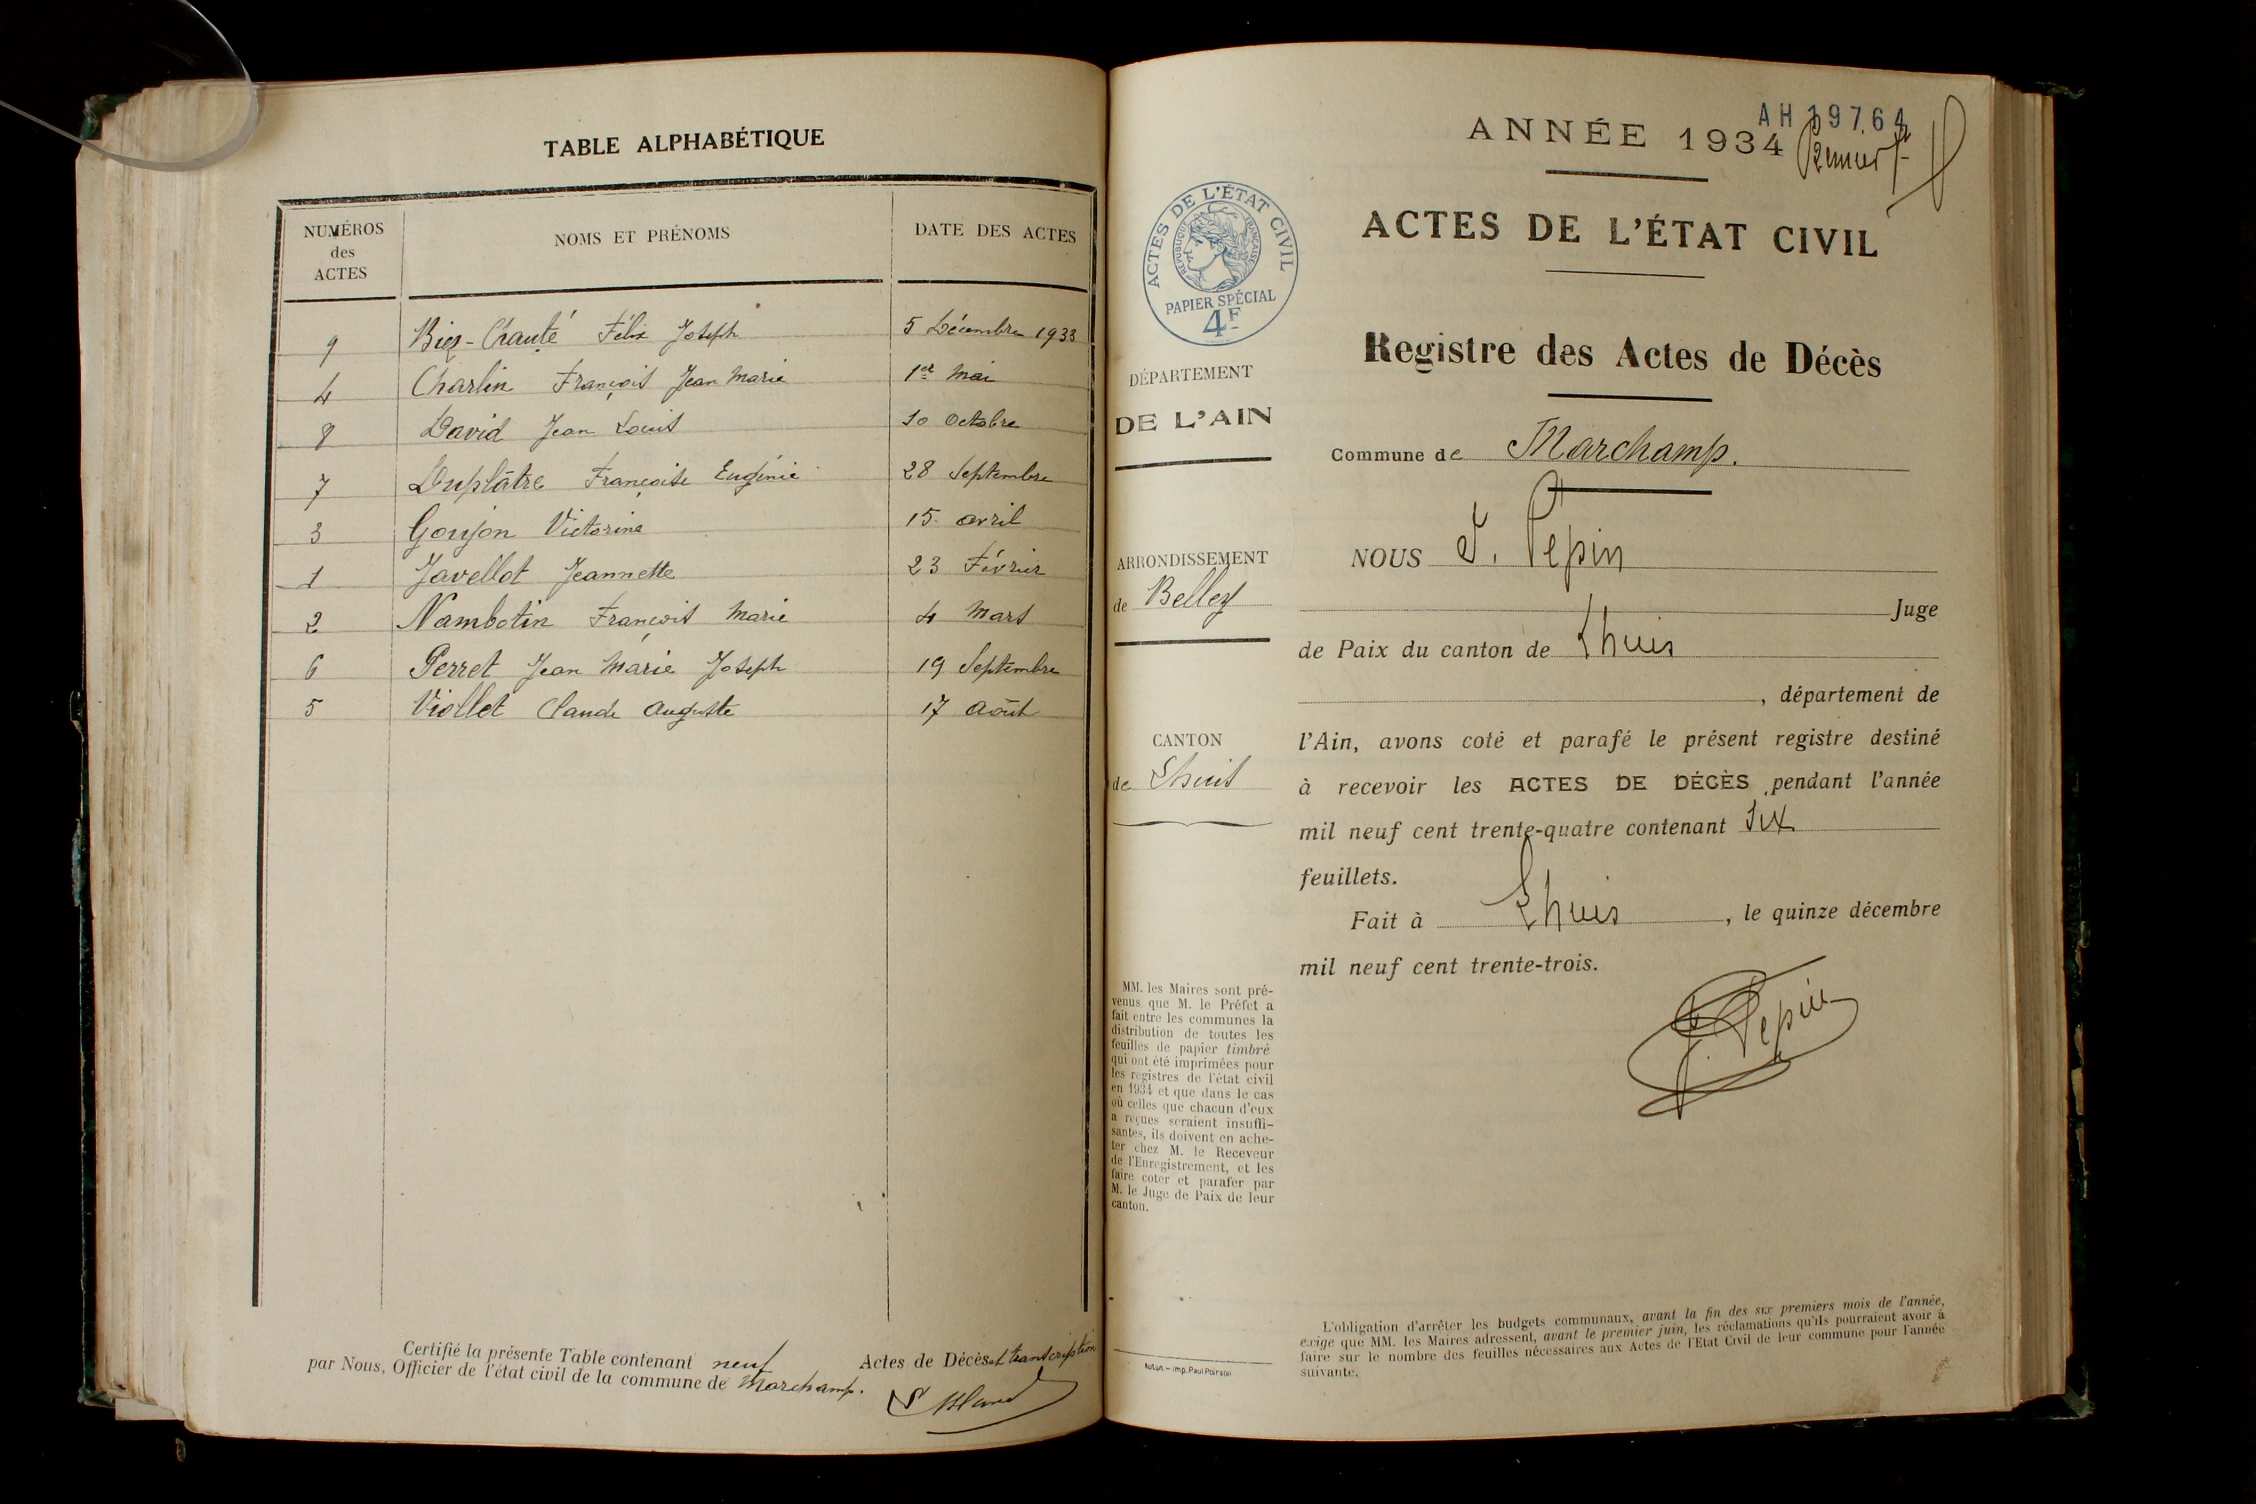 TABLE ALPHABÉTIQUE
NUMÉROS
des
ACTES
NOMS ET PRÉNOMS
DATE DES ACTES
9 Biez-Chanté Félix Joseph 5 Décembre 1933
4 Charlin François Jean Marie 1er Mai
8 David Jean Louis 10 Octobre
7 Duplâtre Françoise Eugénie 28 Septembre
3 Goujon Victorine 15 avril
1 Javellot Jeannette 23 Février
2 Nambotin François Marie 4 Mars
6 Perret Jean Marie Joseph 19 Septembre
5 Viollet Claude Auguste 17 Août
Certifié la présente Table contenant neuf Actes de Décès et transcription
par Nous, Officier de l'état civil de la commune de Marchamp.
AH 19764
ANNÉE 1934
Premier ft
ACTES DE L'ÉTAT CIVIL
ACTES DE L'ÉTAT CIVIL
RÉPUBLIQUE FRANÇAISE
PAPIER SPÉCIAL
4F
Registre des Actes de Décès
DÉPARTEMENT
DE L'AIN
Commune de Marchamp.
ARRONDISSEMENT
de Belley
CANTON
de Lhuis
NOUS J. Pépin
Juge
de Paix du canton de Lhuis
, département de
l'Ain, avons coté et parafé le présent registre destiné
à recevoir les ACTES DE DÉCÈS pendant l'année
mil neuf cent trente-quatre contenant Six
feuillets.
Fait à Lhuis, le quinze décembre
mil neuf cent trente-trois.
J. Pépin
MM. les Maires sont pré-
venus que M. le Préfet a
fait entre les communes la
distribution de toutes les
feuilles de papier timbré
qui ont été imprimées pour
les registres de l'état civil
en 1934 et que dans le cas
où celles que chacun d'eux
a reçues seraient insuffi-
santes, ils doivent en ache-
ter chez M. le Receveur
de l'Enregistrement, et les
faire coter et parafer par
M. le Juge de Paix de leur
canton.
L'obligation d'arrêter les budgets communaux, avant la fin des six premiers mois de l'année,
exige que MM. les Maires adressent, avant le premier juin, les réclamations qu'ils pourraient avoir à
faire sur le nombre des feuilles nécessaires aux Actes de l'Etat Civil de leur commune pour l'année
suivante.
imp. Paul Poirson